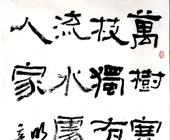 萬樹寒
枝獨有
流水處
人家